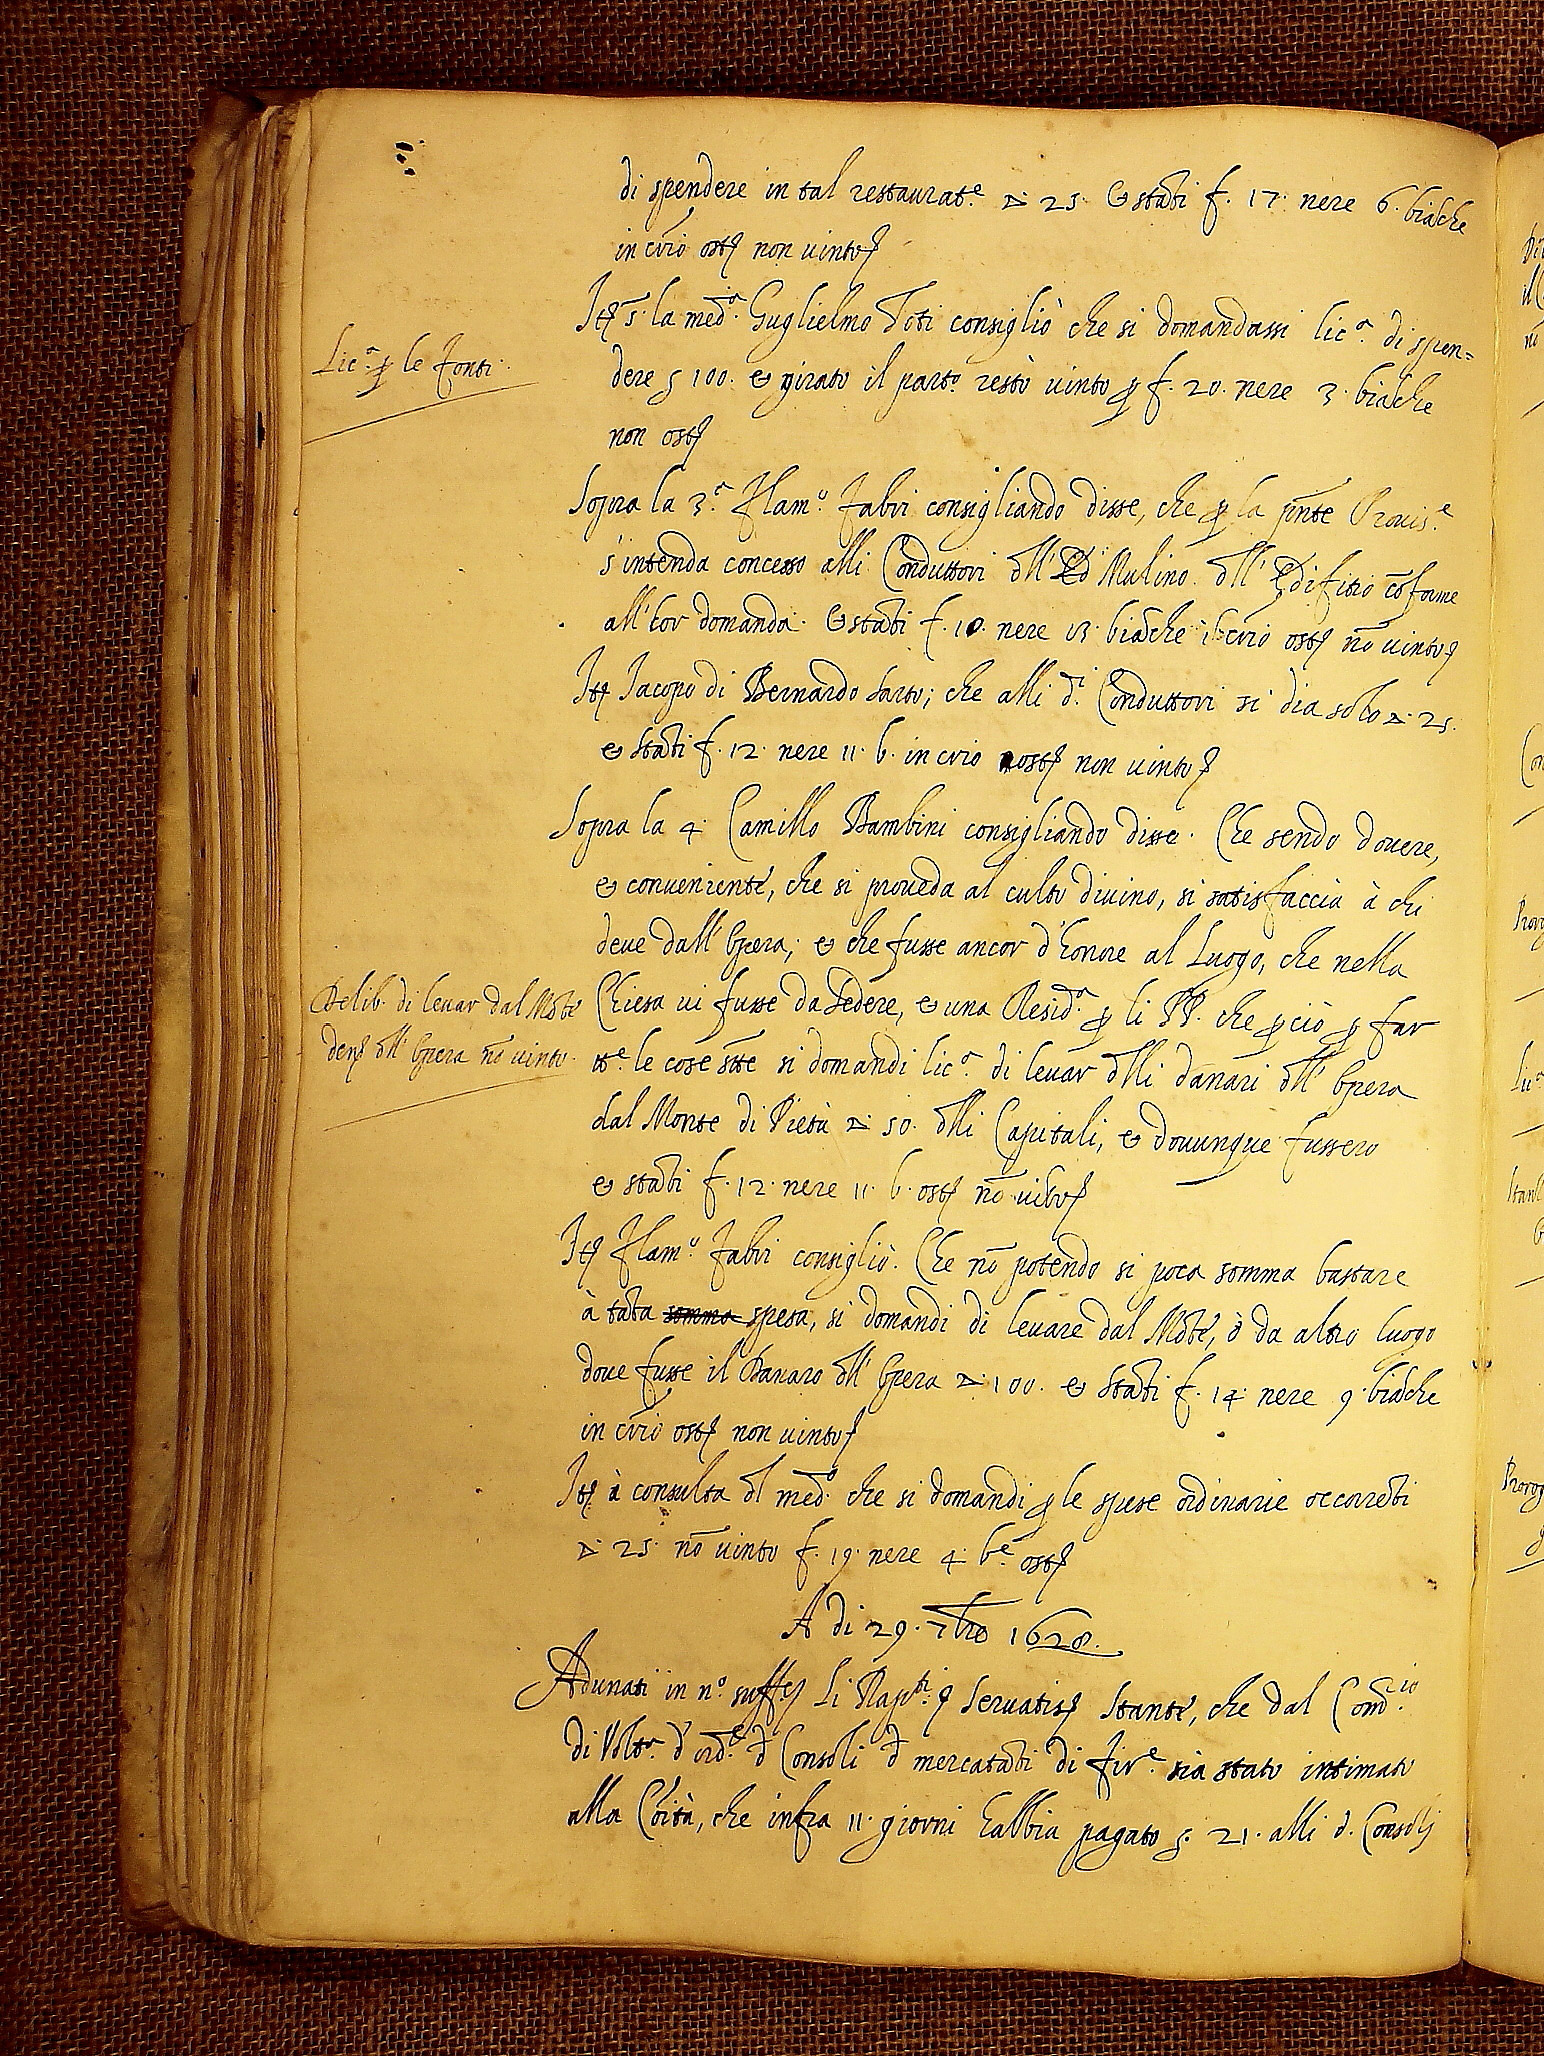 di spendere in tal restaurat.e ▵ 25. et stãti f. 17. nere 6. biãche
in cr̃io ost. non uinto
It. s. la med.a Guglielmo Toti consigliò che si domandassi lic.a di spen=
Lic.a p le fonti.
dere s 100. et girato il parto. restò uinto p f. 20. nere 3. biãche
non ost.
Sopra la 3.a Flam.o Fabri consigliando disse, che p la pñte Prouis.e
s'intenda concesso alli Conduttori dll' Ed Mulino dll' Edifitio cõforme
all' lor domanda. et stãti f. 10. nere 13. biãche i cr̃io ost. nõ uinto
It. Jacopo di Bernardo Sarto; che alli d.i Conduttori si dia solo ▵ 25.
et stãti f. 12. nere 11. b. in crio ost. non uinto
Sopra la 4. Camillo Bambini consigliando disse. Che sendo douere,
et conueniente, che si proueda al culto diuino, si satisfaccia à chi
deue dall' Opera; et che fusse ancor d'honore al Luogo, che nella
Delib. di leuar dal Mõte
Chiesa ui fusse da Sedere, et una Resid.a p li PP. che pciò p far
den. dll' Opera nõ uinto.
tt.e le cose s̃tte si domandi lic.a di leuar dlli danari dll' Opera
dal Monte di Pietà ▵ 50. dlli Capitali, et douunque fussero
et stãti f. 12. nere 11. b. ost. nõ uĩto
It. Flam.o Fabri consigliò. Che nõ potendo si poca somma bastare
à tãta somma spesa, si domandi di leuare dal Mõte, ò da altro luogo
doue fusse il Danaro dll' Opera ▵ 100. et stãti f. 14. nere 9. biãche
in cr̃io ost. non uinto
It. à consulta dl med.o che si domandi p le spese ordinarie occorrẽti
▵ 25. nõ uinto f. 19. nere 4. b.e ost.
A di 29. 7bro 1628.
Adunati in n.o suff.e Li Rap.ti Seruatis Stante, che dal Com.rio
di Volt.a d' ord.e d Consoli d mercatãti di Fir.e sia stato intimato
alla Cõità, che infra 11. giorni habbia pagato s. 21. alli d. Consoli